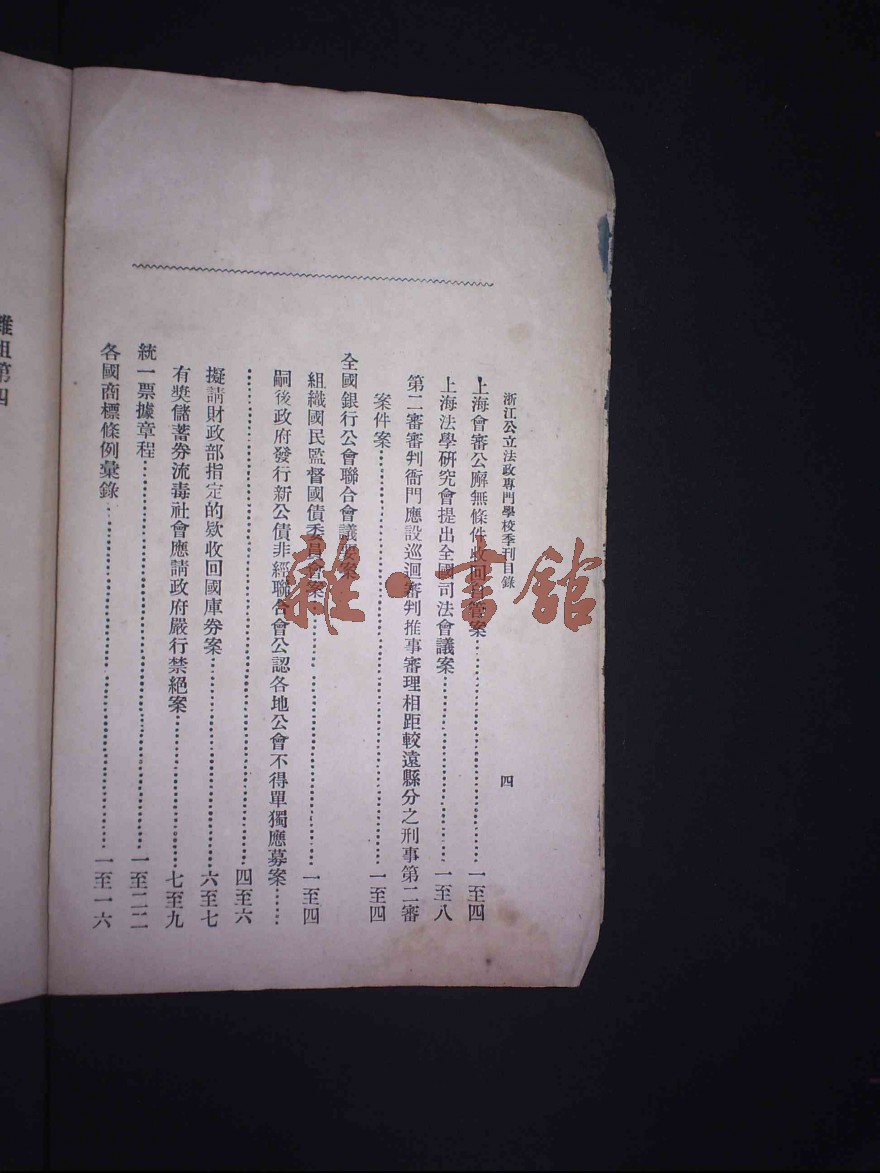 浙江公立法政專門學校季刊目錄 四
上海會審公廨無條件收回自管案……一至四
上海法學研究會提出全國司法會議案……一至八
第二審審判衙門應設巡迴審判推事審理相距較遠縣分之刑事第二審
案件案……一至四
全國銀行公會聯合會議要案
組織國民監督國債委員會案……一至四
嗣後政府發行新公債非經聯合會公認各地公會不得單獨應募案……
……四至六
擬請財政部指定的欵收回國庫券案……六至七
有奬儲蓄券流毒社會應請政府嚴行禁絕案……七至九
統一票據章程……一至二二
各國商標條例彙錄……一至一六
雜俎第四
雜·書館